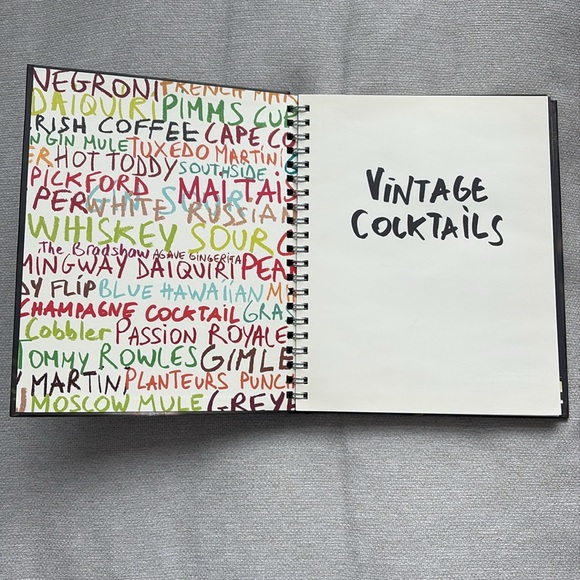 NEGRONI FRENCH MAR
DAIQUIRI PIMMS CU
RISH COFFEE CAPE CO
N GIN MULE TUXEDO MARTINI
ER HOT TODDY SOUTHSIDE
PICKFORD GIN SOUR MAI TAIS
PER WHITE RUSSIAN
WHISKEY SOUR C
The Bradshaw AGAVE GINGERITA
MINGWAY DAIQUIRI PEA
DY FLIP BLUE HAWAIIAN M
CHAMPAGNE COCKTAIL GRA
Cobbler PASSION ROYALE
TOMMY ROWLES GIMLE
Y MARTIN PLANTEURS PUNCH
MOSCOW MULE GREY
VINTAGE
COCKTAILS